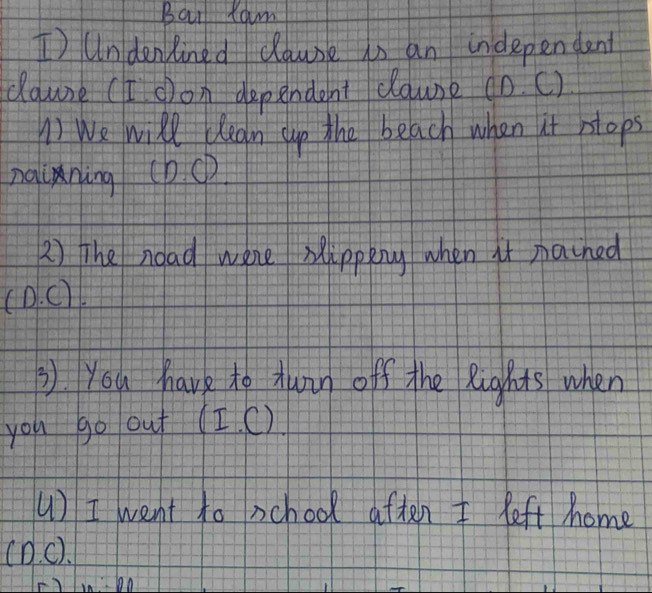 Bài làm
I) Underlined clause is an independent
clause (I.C) or dependent clause (D.C).
1) We will clean up the beach when it stops
raining (D.C).
2) The road were slippery when it rained
(D.C).
3). You have to turn off the lights when
you go out (I.C).
4) I went to school after I left home
(D.C).